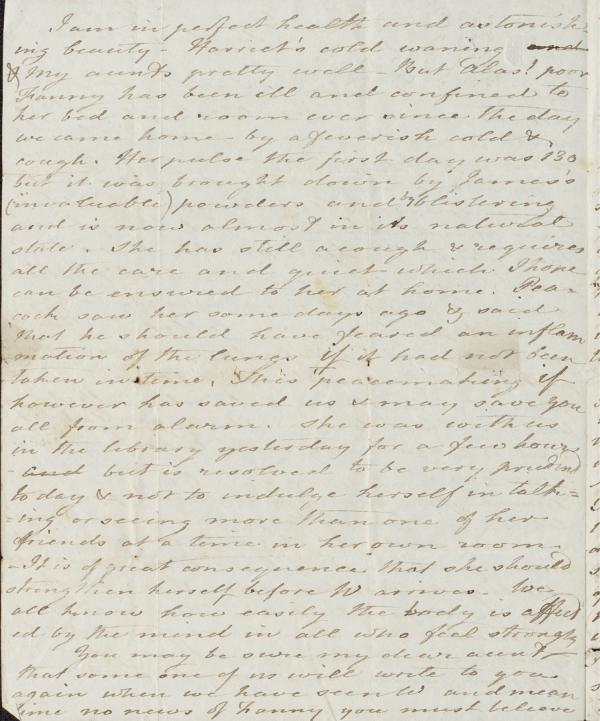 I am in perfect health and astonish
ing beauty - Harriet's cold waning and
& my aunts pretty well - But Alas! poor
Fanny has been ill and confined to
her bed and room ever since the day
we came home - by a feverish cold &
cough. Her pulse the first day was 130
but it was brought down by James's
(invaluable) powders and by blistering
and is now almost in its natural
state. She has still a cough & requires
all the care and quiet which I hope
can be ensured to her at home. Pea-
cock saw her some days ago & said
that he should have feared an inflam
mation of the lungs if it had not been
taken in time. This peacemaking if
however has saved us & may save you
all from alarm. She was with us
in the library yesterday for a few hours
- and but is resolved to be very prudent
today & not to indulge herself in talk=
=ing or seeing more than one of her
friends at a time in her own room -
- It is of great consequence that she should
strengthen herself before W arrives. We
all know how easily the body is affect
ed by the mind in all who feel strongly
You may be sure my dear aunt
that some one of us will write to you
again when we have seen W and mean
time no news of Fanny you must believe